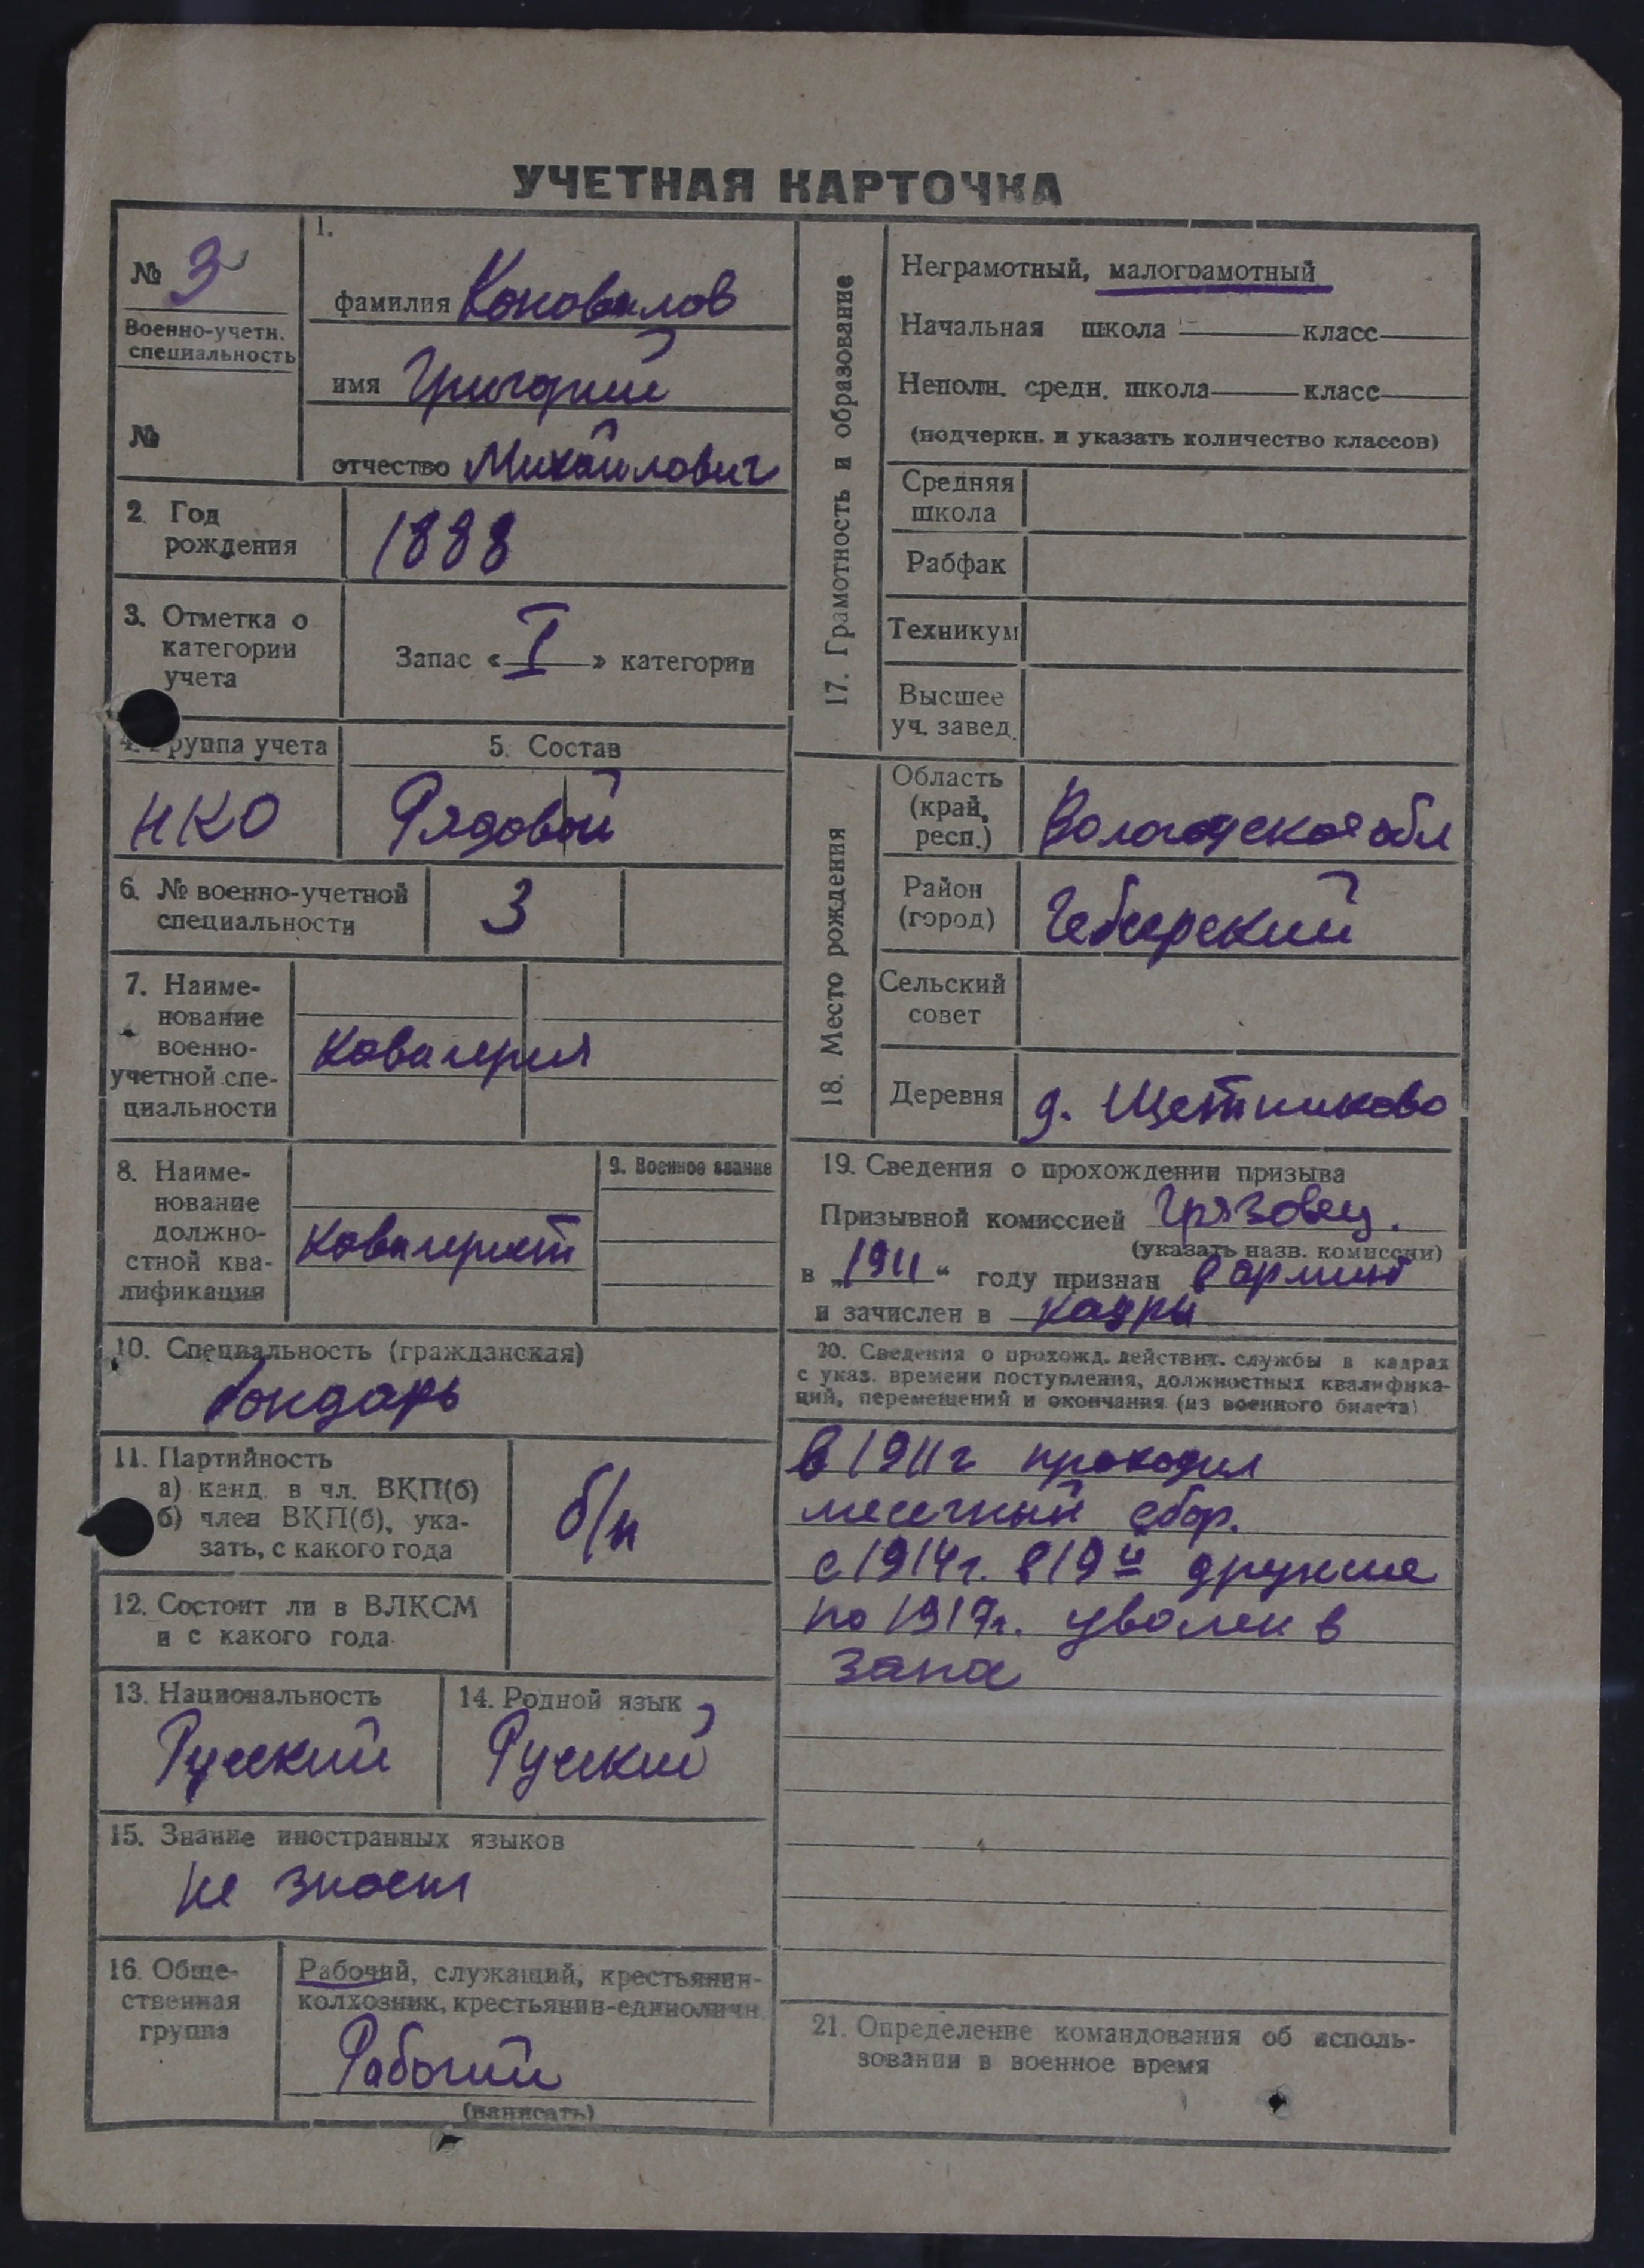 УЧЕТНАЯ КАРТОЧКА
№ 3
Военно-учетн.
специальность
№
1.
фамилия Коновалов
имя Григорий
отчество Михайлович
2. Год
рождения
1888
3. Отметка о
категории
учета
Запас « I » категории
4. Группа учета
НКО
5. Состав
Рядовой
6. № военно-учетной
специальности
3
7. Наиме-
нование
военно-
учетной спе-
циальности
Ковалерия
8. Наиме-
нование
должно-
стной ква-
лификации
Ковалерист
9. Военное звание
10. Специальность (гражданская)
бондарь
11. Партийность
а) канд. в чл. ВКП(б)
б) член ВКП(б), ука-
зать, с какого года
б/п
12. Состоит ли в ВЛКСМ
и с какого года
13. Национальность
Русский
14. Родной язык
Русский
15. Знание иностранных языков
не знает
16. Обще-
ственная
группа
Рабочий, служащий, крестьянин-
колхозник, крестьянин-единоличн.
Рабочий
(написать)
17. Грамотность и образование
Неграмотный, малограмотный
Начальная школа класс
Неполн. средн. школа класс
(подчеркн. и указать количество классов)
Средняя
школа
Рабфак
Техникум
Высшее
уч. завед.
18. Место рождения
Область
(край,
респ.)
Вологодская обл
Район
(город)
Чебсарский
Сельский
совет
Деревня
д. Щетниково
19. Сведения о прохождении призыва
Призывной комиссией Грязовец.
(указать назв. комиссии)
в „1911“ году признан в армию
и зачислен в кадры
20. Сведения о прохожд. действит. службы в кадрах
с указ. времени поступления, должностных квалифика-
ций, перемещений и окончания (из военного билета)
в 1911г проходил
месечный сбор.
с 1914г. в 19й дружине
по 1917г. уволен в
запас
21. Определение командования об исполь-
зовании в военное время